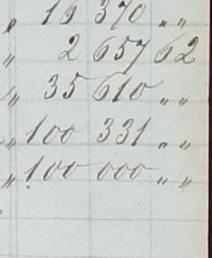 „ 16 370 „ „
„ 2 657 62
„ 35 610 „ „
„ 100 331 „ „
„ 100 000 „ „